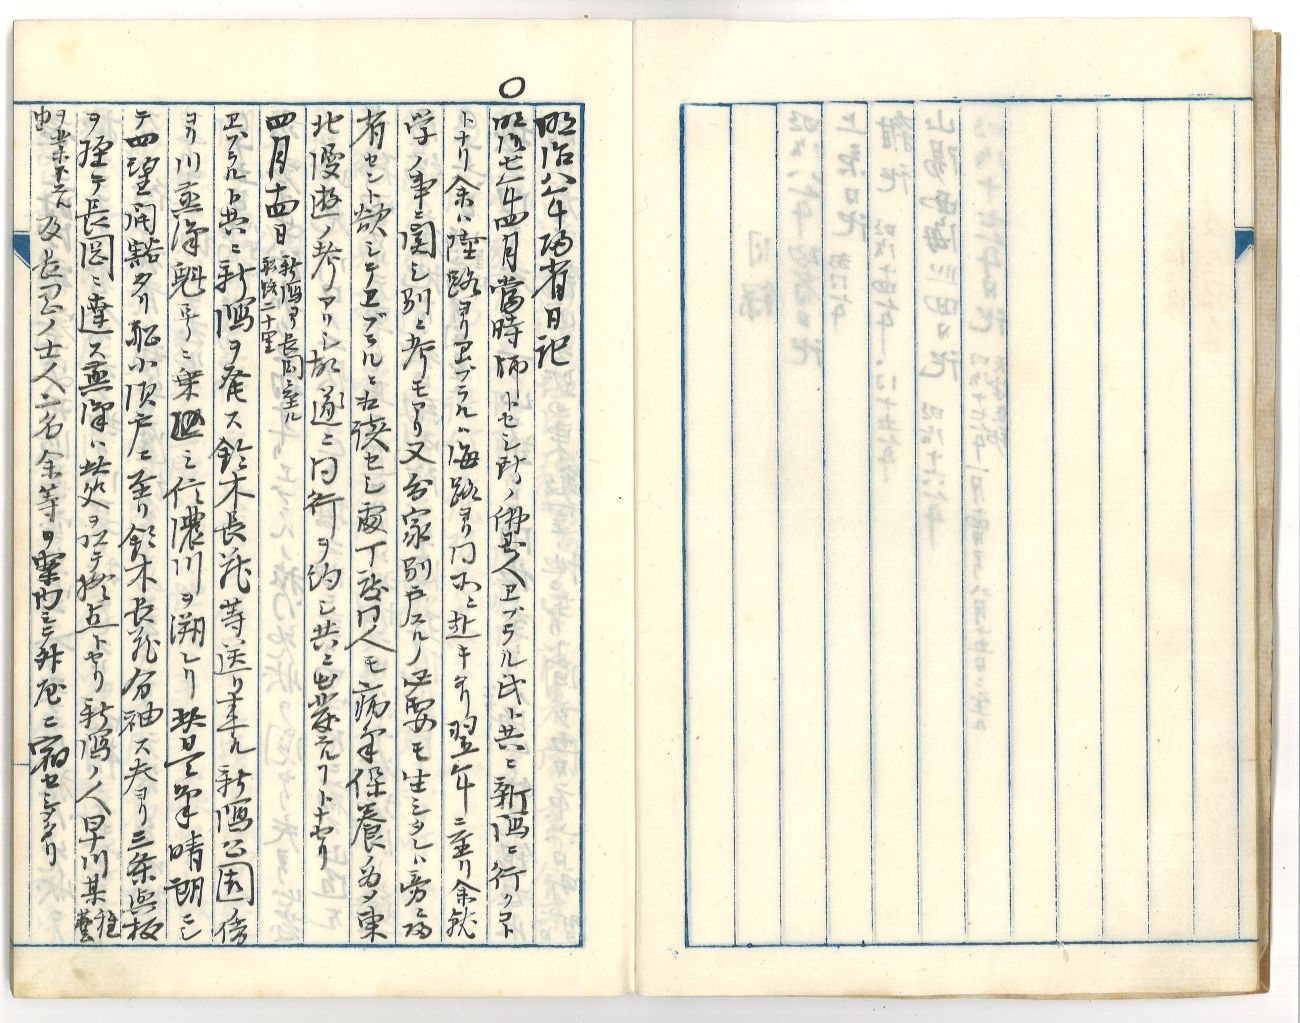 ○
明治八年帰省日記
明治七年四月當時師トセシ所ノ佛国人ヱブラル氏ト共ニ新潟ニ行クコト
トナリ余ハ陸路ヨリヱブラルハ海路ヨリ同所ニ赴キタリ翌年ニ至リ余就
学ノ事ニ関シ別ニ考モアリ又分家別戸スルノ必要モ生シタレハ旁帰
省セント欲シテヱブラルニ相談セシ處丁度同人モ病気保養ノ為メ東
北漫遊ノ考アリシ故遂ニ同行ヲ約シ共ニ出発スルコトトナセリ
四月十四日 新潟ヨリ長岡ニ至ル 船路二十里
ヱブラルト共ニ新潟ヲ発ス鈴木長蔵等送リ来ル新潟公園傍
ヨリ川蒸滊魁号ニ乗組ミ信濃川ヲ溯レリ此日天気晴朗ニシ
テ四望開豁タリ船小須戸ニ至リ鈴木長蔵分袖ス夫ヨリ三条與板
ヲ経テ長岡ニ達ス蒸滊ハ此処ヲ以テ終点トセリ新潟ノ人早川某 雑藝
ヲ業トスル由 及長岡ノ士人二名余等ヲ案内シテ舛屋ニ宿セシメタリ